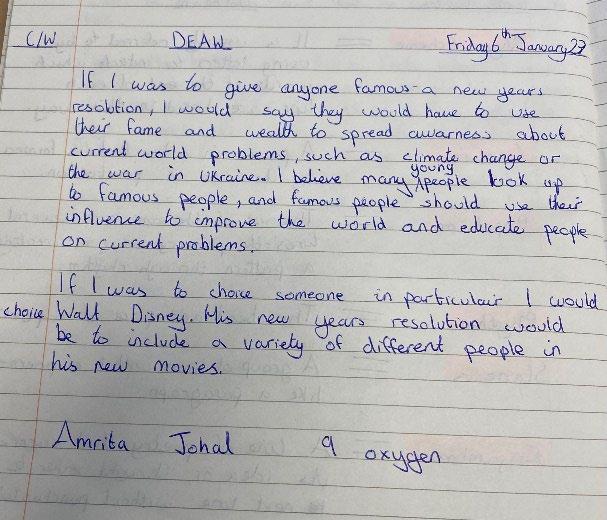 C/W DEAW Friday 6th January 23
If I was to give anyone famous a new years
resolution, I would say they would have to use
their fame and wealth to spread awarness about
current world problems, such as climate change or
the war in Ukraine. I believe many young people look up
to famous people, and famous people should use their
influence to improve the world and educate people
on current problems.
If I was to choice someone in particulair I would
choice Walt Disney. His new years resolution would
be to include a variety of different people in
his new movies.
Amrita Johal 9 oxygen